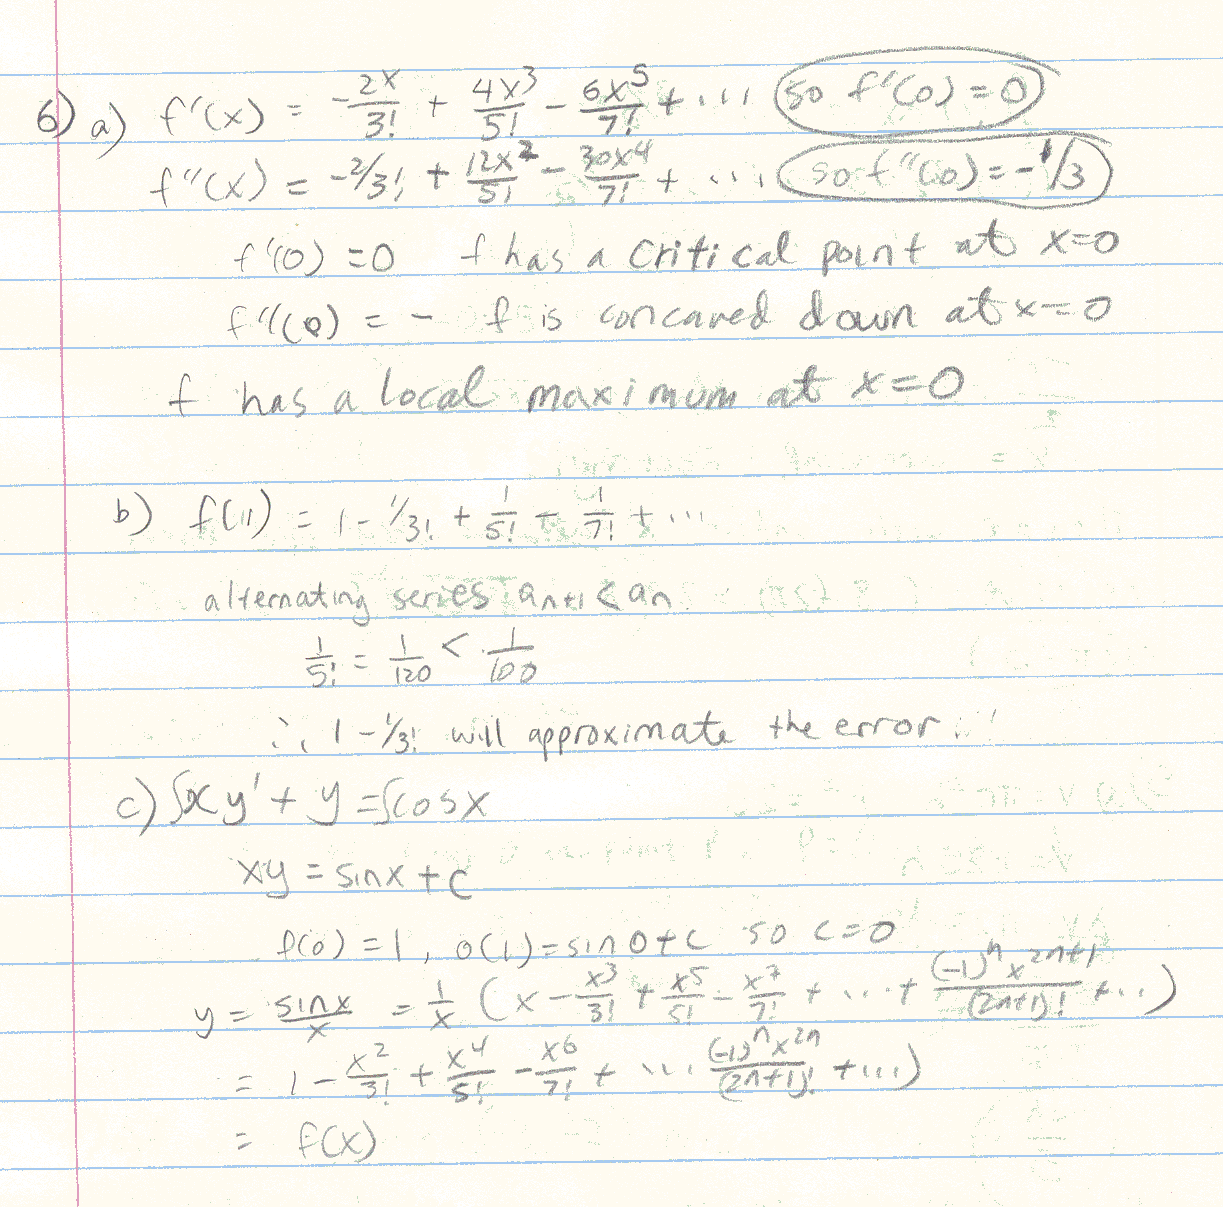 6) a) f'(x) = -2x/3! + 4x^3/5! - 6x^5/7! + ... so f'(0) = 0
f''(x) = -2/3! + 12x^2/5! - 30x^4/7! + ... so f''(0) = -1/3
f'(0) = 0 f has a critical point at x=0
f''(0) = - f is concaved down at x=0
f has a local maximum at x=0
b) f(1) = 1 - 1/3! + 1/5! - 1/7! + ...
alternating series a_{n+1} < a_n
1/5! = 1/120 < 1/100
∴ 1 - 1/3! will approximate the error.
c) ∫xy' + y = ∫cosx
xy = sinx + c
f(0) = 1, 0(1) = sin0 + c so c = 0
y = sinx/x = 1/x (x - x^3/3! + x^5/5! - x^7/7! + ... + (-1)^n x^{2n+1}/(2n+1)! + ...)
= 1 - x^2/3! + x^4/5! - x^6/7! + ... (-1)^n x^{2n}/(2n+1)! + ...)
= f(x)